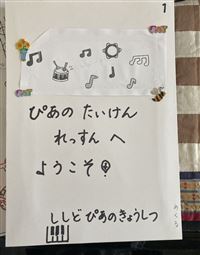 1
ぴあの たいけん
れっすん へ
ようこそ！
ししど ぴあのきょうしつ
めくる